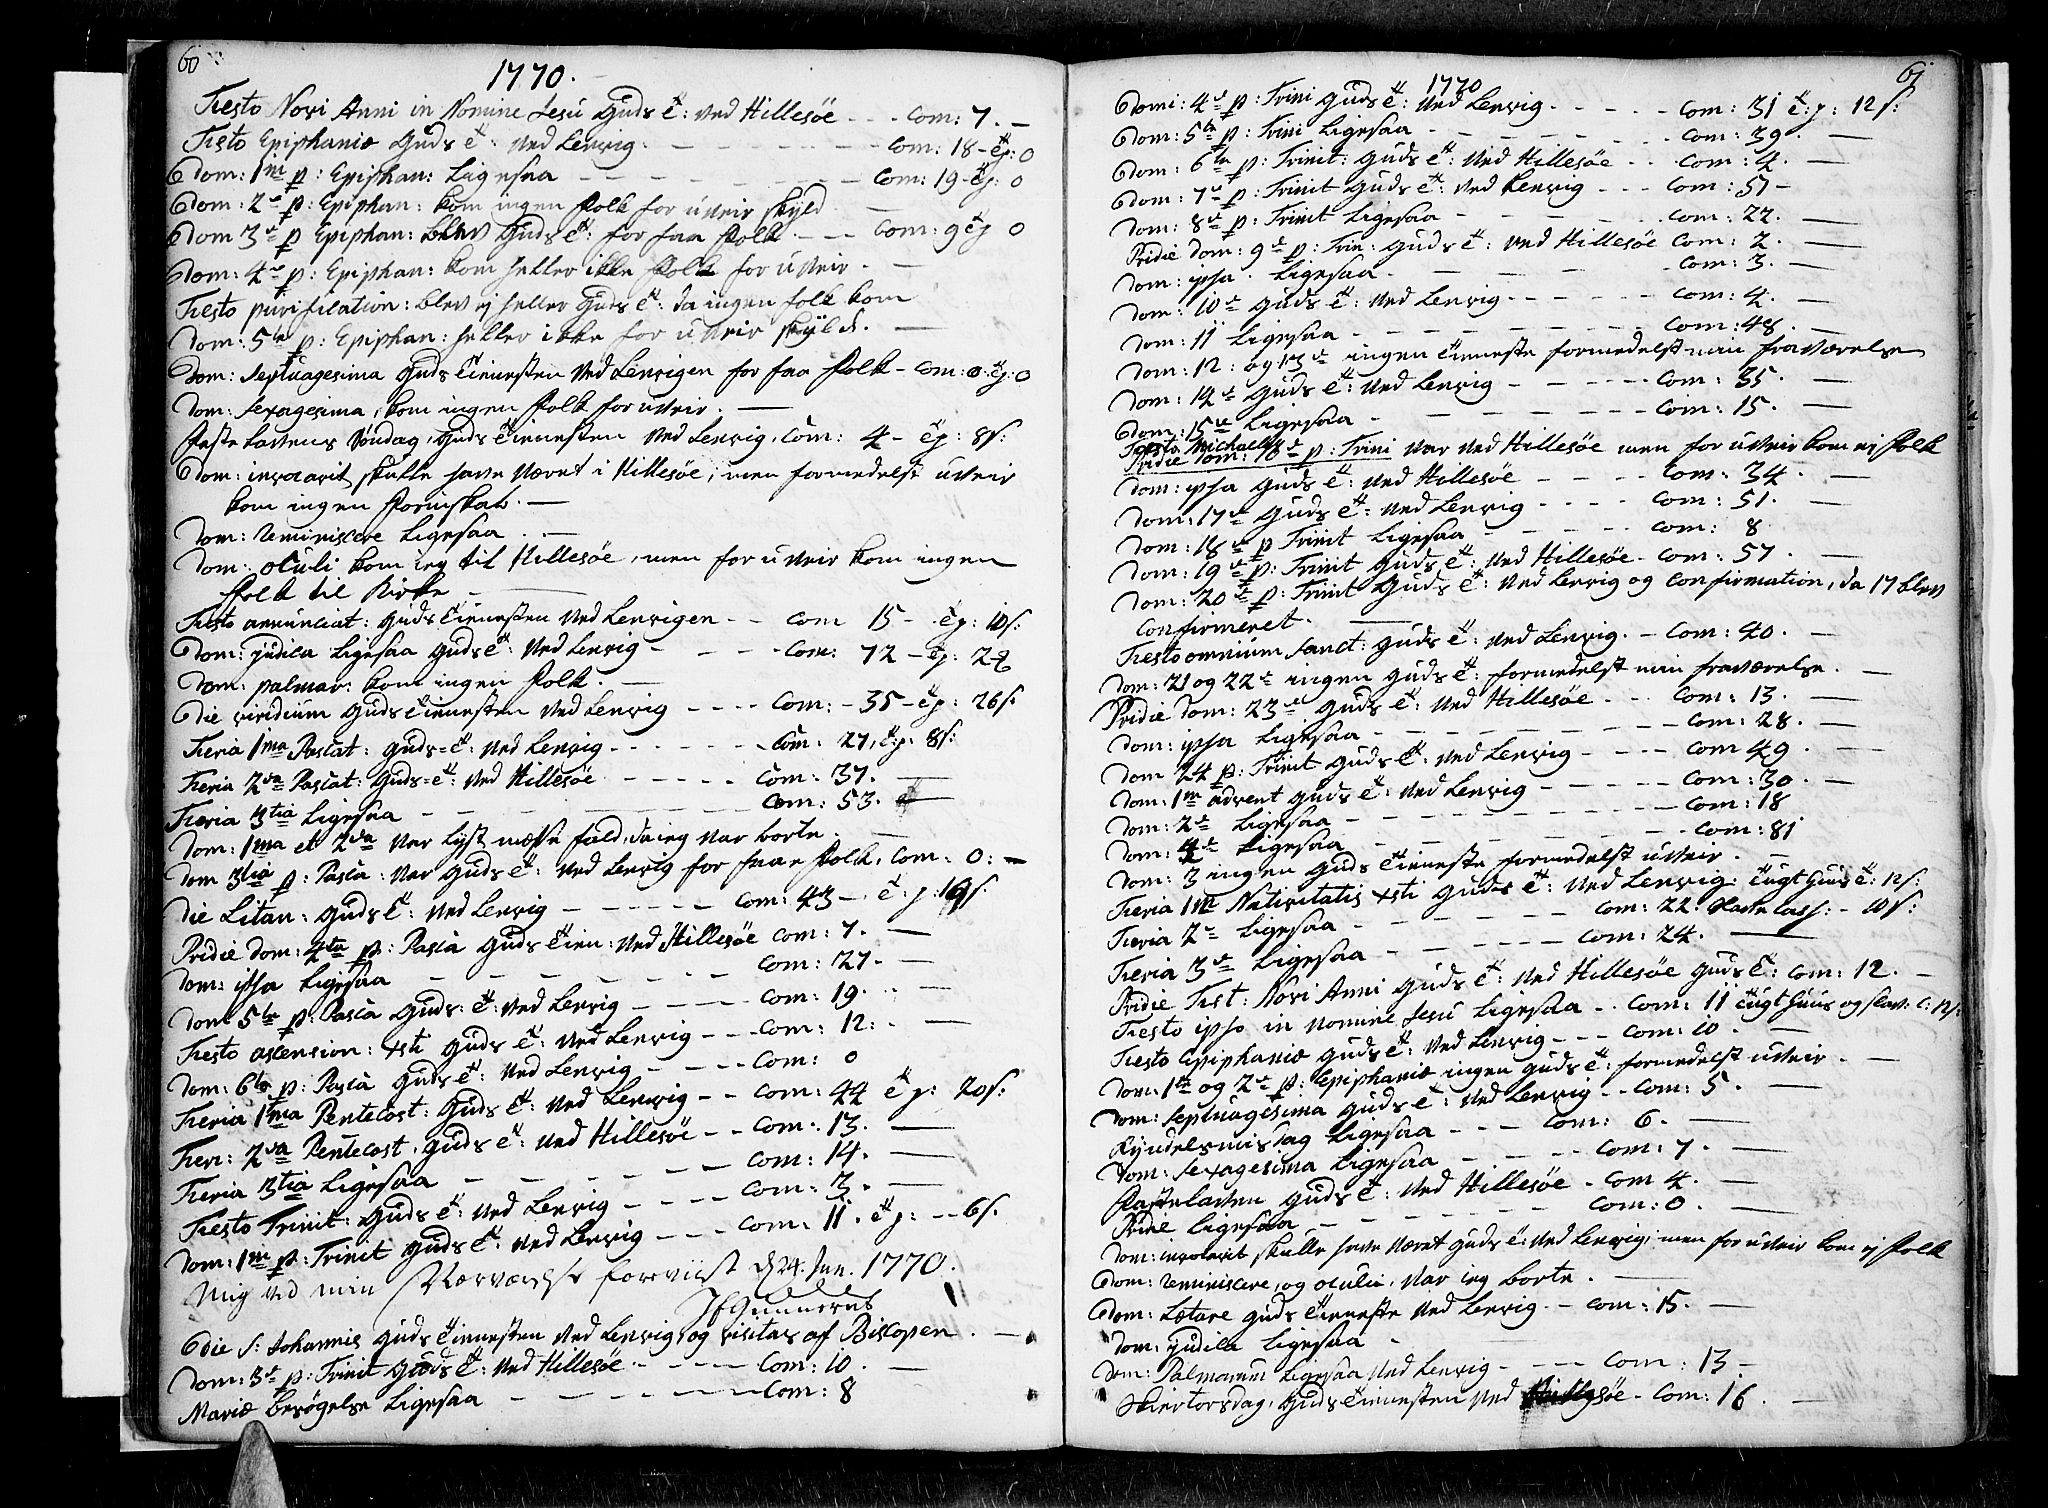 60
1770.
Festo Novi Anni in Nomine Jesu Guds t: ved Hillesöe - - - Com: 7. —
Festo Epiphaniæ Guds t: ved Lenvig. - - - Com: 18 - tj: 0
Dom: 1m p: Epiphan: Ligesaa - - - Com: 19 - tj: 0
Dom: 2de p: Epiphan: kom ingen Folk for uveir skyld —
Dom 3de p Epiphan: blev Guds t: for faa Folk - - Com: 9 tj 0
Dom: 4de p: Epiphan: kom heller ikke Folk for uveir. —
Festo purification: blev ej heller Guds t: da ingen folk kom
Dom: 5te p: Epiphan: heller ikke for uveir skÿld. —
Dom: Septuagesima Guds tienesten ved Lenvigen for faa Folk - Com: 0. tj: 0
Dom: Sexagesima, kom ingen Folk for uveir. —
Faste Lavens Söndag, Guds tienesten ved Lenvig. Com: 4 - tj: 8s:
Dom: invocavit skulle have været i Hillesöe, men formedelst uveir
kom ingen formskab. —
Dom: Reminiscere Ligesaa. —
Dom: Oculi kom jeg til Hillesöe, men for uveir kom ingen
Folk til Kirke - —
Festo annunciat: Guds tienesten ved Lenvigen - - Com 15 - tj: 10s:
Dom: judica Ligesaa Guds t: ved Lenvig - - - Com: 72 - tj: 28
Dom: palmar: kom ingen Folk. —
Die viridium Guds tienesten ved Lenvig - - - - Com: - 35 - tj: 26s.
Feria 1ma Pascat: Guds=t: ved Lenvig - - - - Com: 27, tj: 8s:
Feria 2da Pascat: Guds=t: ved Hillesöe - - - - Com: 37. —
Feria 3tia Ligesaa - - - - Com: 53. —
Dom: 1ma et 2da var lyst messe fald, da jeg var borte. —
Dom 3tia p: Pasca: var Guds t: ved Lenvig for faae Folk, Com: 0: —
Die Litan: Guds t: ved Lenvig - - - - Com: 43 -. t: j: 16s:
Pridie Dom: 4ta p: Pasca Guds tien: ved Hillesöe Com: 7. —
Dom: ipsa Ligesaa - - - - Com: 27. —
Dom 5te p: Pasca Guds: t: ved Lenvig - - - - Com: 19. —
Festo ascension: xsti Guds t: ved Lenvig - - Com: 12: —
Dom: 6te p: Pasca Guds t: ved Lenvig - - - - Com: 0
Feria 1ma Pentecost: Guds t: ved Lenvig - - Com: 44 tj: 20s:
Feri: 2da Pentecost. Guds t: ved Hillesöe - - Com: 13. —
Feria 3tia Ligesaa - - - - Com: 14. —
Festo Trinit: Guds t: ved Lenvig - - - - Com: 3. —
Dom: 1m p: Trinit Guds t: ved Lenvig - - - Com: 11. tj: - - 6s.
Mig ved min Nærværelse foreviist d 24. Jun. 1770.
JfGunnerus
Die S: Johannis Guds tienesten ved Lenvig og visitas af Biskopen. —
Dom: 3de p: Trinit Guds t: ved Hillesöe - - - - Com: 10. —
Mariæ besögelse Ligesaa - - - - Com: 8
61
1770
Domi: 4de p: Trini Guds t: ved Lenvig - - - - Com: 31 t: j: 12s:
Dom: 5te p: Trini Ligesaa - - - - Com: 39. —
Dom: 6te p: Trinit: Guds t: ved Hillesöe - - Com: 4. —
Dom: 7de p: Trinit Guds t: ved Lenvig - - - Com: 57 -
Dom: 8de p: Trinit Ligesaa - - - - Com: 22. —
Pridie Dom: 9de p: Trin: Guds t: ved Hillesöe Com: 2. —
Dom: ipsa. Ligesaa. - - - - Com: 3. —
Dom: 10de Guds t: ved Lenvig - - - - Com: 4. —
Dom: 11 Ligesaa - - - - Com: 48. —
Dom: 12: og 13de ingen tieneste formedelst min fraværelse
Dom: 14de Guds t: ved Lenvig - - - - Com: 35. —
Dom: 15de Ligesaa - - - - Com: 15. —
Festo Michaelis
Pridie Dom: 16de p: Trini var ved Hillesöe men for uveir kom ej Folk
Dom: ipsa Guds t: ved Hillesöe - - - - Com: 34. —
Dom: 17de Guds t: ved Lenvig - - - - Com: 51. —
Dom: 18de p Trinit Ligesaa - - - - Com: 8
Dom: 19de p: Trinit Guds t: ved Hillesöe - Com: 57. —
Dom: 20de p: Trinit Guds t: ved Lenvig og Confirmation, da 17 blev
Confirmeret. —
Festo omnium Sanct: Guds t: ved Lenvig. - Com: 40. —
Dom: 21 og 22de ingen Guds t: formedelst min fraværelse. —
Pridie Dom: 23de Guds t: ved Hillesöe - - - Com: 13. —
Dom: ipsa Ligesaa - - - - Com: 28. —
Dom 24 p: Trinit Guds t: ved Lenvig - - - - Com 49. —
Dom: 1m advent Guds t: ved Lenvig - - - - Com: 30. —
Dom: 2de Ligesaa - - - - Com: 18
Dom: 4de Ligesaa - - - - Com: 81
Dom: 3 ingen Guds tieneste formedelst uveir. —
Feria 1m Nativitatis xsti Guds t: ved Lenvig. tugthuus t: 12s:
Feria 2de Ligesaa - - - - Com: 22. - 10s:
Feria 3de Ligesaa - - - - Com: 24. —
Pridie Fest: Novi Anni Guds t: ved Hillesöe Guds t: Com: 12. —
Festo ipso in nomine Jesu Ligesaa - - Com: 11 tugthuus og slav: C: 12s:
Festo Epiphaniæ Guds t: ved Lenvig - - - Com: 10. —
Dom: 1te og 2de p: Epiphaniæ ingen Guds t: formedelst uveir. —
Dom: Septuagesima Guds t: ved Lenvig - - Com: 5. —
Kyndelsmisdag Ligesaa - - - Com: 6. —
Dom: Sexagesima Ligesaa - - - Com: 7. —
Fastelavn Guds t: ved Hillesöe - Com 4. —
Pridie Ligesaa - - - - Com: 0. —
Dom: invocavit skulle have været Guds t: ved Lenvig, men for uveir kom ej Folk
Dom: Reminiscere, og Oculi, var jeg borte. —
Dom: Lætare Guds tieneste ved Lenvig. - Com: 15. —
Dom: judica Ligesaa -
Dom: Palmarum Ligesaa ved Lenvig - - - - Com: 13 -
Skiertorsdag, Guds tienesten ved Hillesöe - Com: 16. —